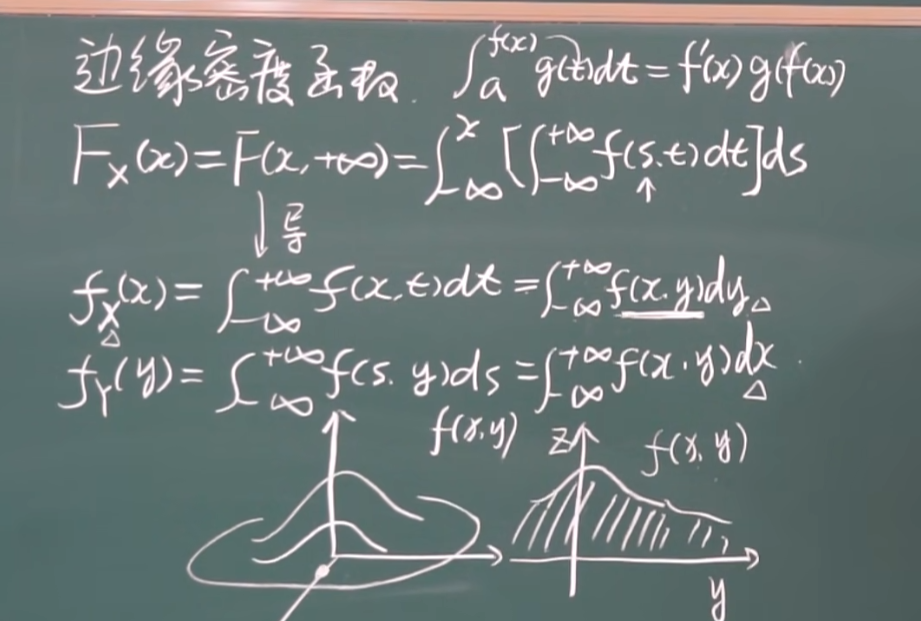 边缘密度函数. ∫_a^{f(x)} g(t)dt = f'(x) g(f(x))
F_X(x) = F(x, +∞) = ∫_{-∞}^{x} [∫_{-∞}^{+∞} f(s.t) dt] ds
↓ 导 ↑
f_X(x) = ∫_{-∞}^{+∞} f(x,t) dt = ∫_{-∞}^{+∞} f(x.y) dy △
△
f_Y(y) = ∫_{-∞}^{+∞} f(s. y) ds = ∫_{-∞}^{+∞} f(x.y) dx
△
f(x,y) z f(x,y)
y